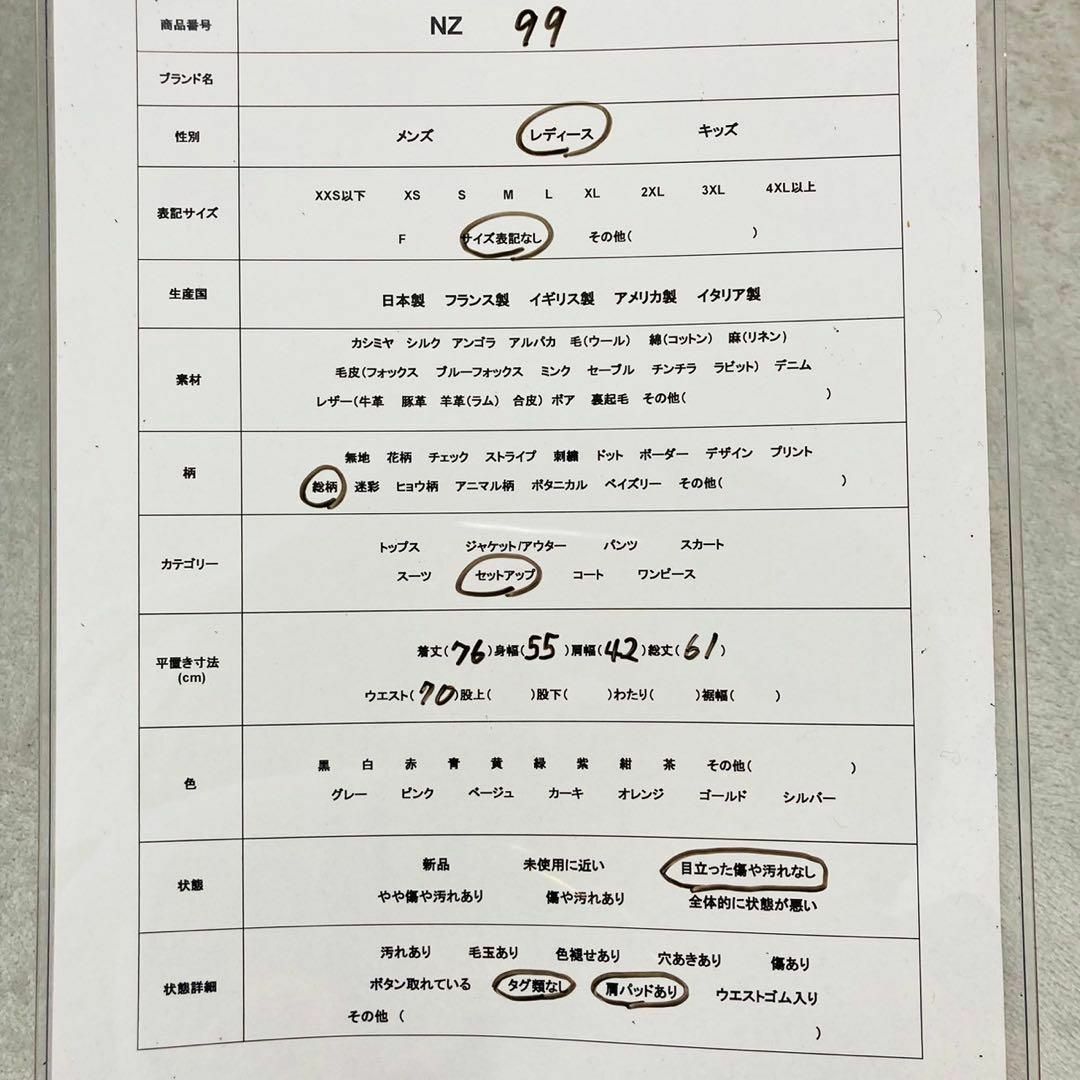 商品番号 NZ 99
ブランド名
性別 メンズ レディース キッズ
表記サイズ XXS以下 XS S M L XL 2XL 3XL 4XL以上
F サイズ表記なし その他( )
生産国 日本製 フランス製 イギリス製 アメリカ製 イタリア製
素材 カシミヤ シルク アンゴラ アルパカ 毛(ウール) 綿(コットン) 麻(リネン)
毛皮(フォックス ブルーフォックス ミンク セーブル チンチラ ラビット) デニム
レザー(牛革 豚革 羊革(ラム) 合皮) ボア 裏起毛 その他( )
柄 無地 花柄 チェック ストライプ 刺繍 ドット ボーダー デザイン プリント
総柄 迷彩 ヒョウ柄 アニマル柄 ボタニカル ペイズリー その他( )
カテゴリー トップス ジャケット/アウター パンツ スカート
スーツ セットアップ コート ワンピース
平置き寸法 着丈(76)身幅(55)肩幅(42)総丈(61)
(cm) ウエスト(70)股上( )股下( )わたり( )裾幅( )
色 黒 白 赤 青 黄 緑 紫 紺 茶 その他( )
グレー ピンク ベージュ カーキ オレンジ ゴールド シルバー
状態 新品 未使用に近い 目立った傷や汚れなし
やや傷や汚れあり 傷や汚れあり 全体的に状態が悪い
状態詳細 汚れあり 毛玉あり 色褪せあり 穴あきあり 傷あり
ボタン取れている タグ類なし 肩パッドあり ウエストゴム入り
その他 ( )